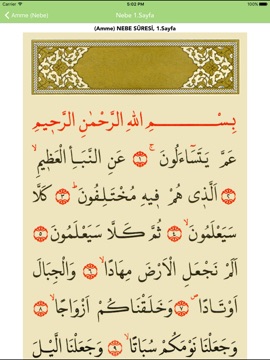 Carrier 5:02 PM 100%
Amme (Nebe) Nebe 1.Sayfa
(Amme) NEBE SÛRESİ, 1.Sayfa
بِسْــــــمِ اللهِ الرَّحْمٰنِ الرَّحٖيمِ
عَمَّ يَتَسَٓاءَلُونَۚ ﴿١﴾ عَنِ النَّبَأِ الْعَظٖيمِۙ ﴿٢﴾
اَلَّذٖى هُمْ فٖيهِ مُخْتَلِفُونَؕ ﴿٣﴾ كَلَّا
سَيَعْلَمُونَۙ ﴿٤﴾ ثُمَّ كَلَّا سَيَعْلَمُونَ ﴿٥﴾
اَلَمْ نَجْعَلِ الْاَرْضَ مِهَادًاۙ ﴿٦﴾ وَالْجِبَالَ
اَوْتَادًاۖ ﴿٧﴾ وَخَلَقْنَاكُمْ اَزْوَاجًاۙ ﴿٨﴾
وَجَعَلْنَا نَوْمَكُمْ سُبَاتًاۙ ﴿٩﴾ وَجَعَلْنَا الَّيْلَ